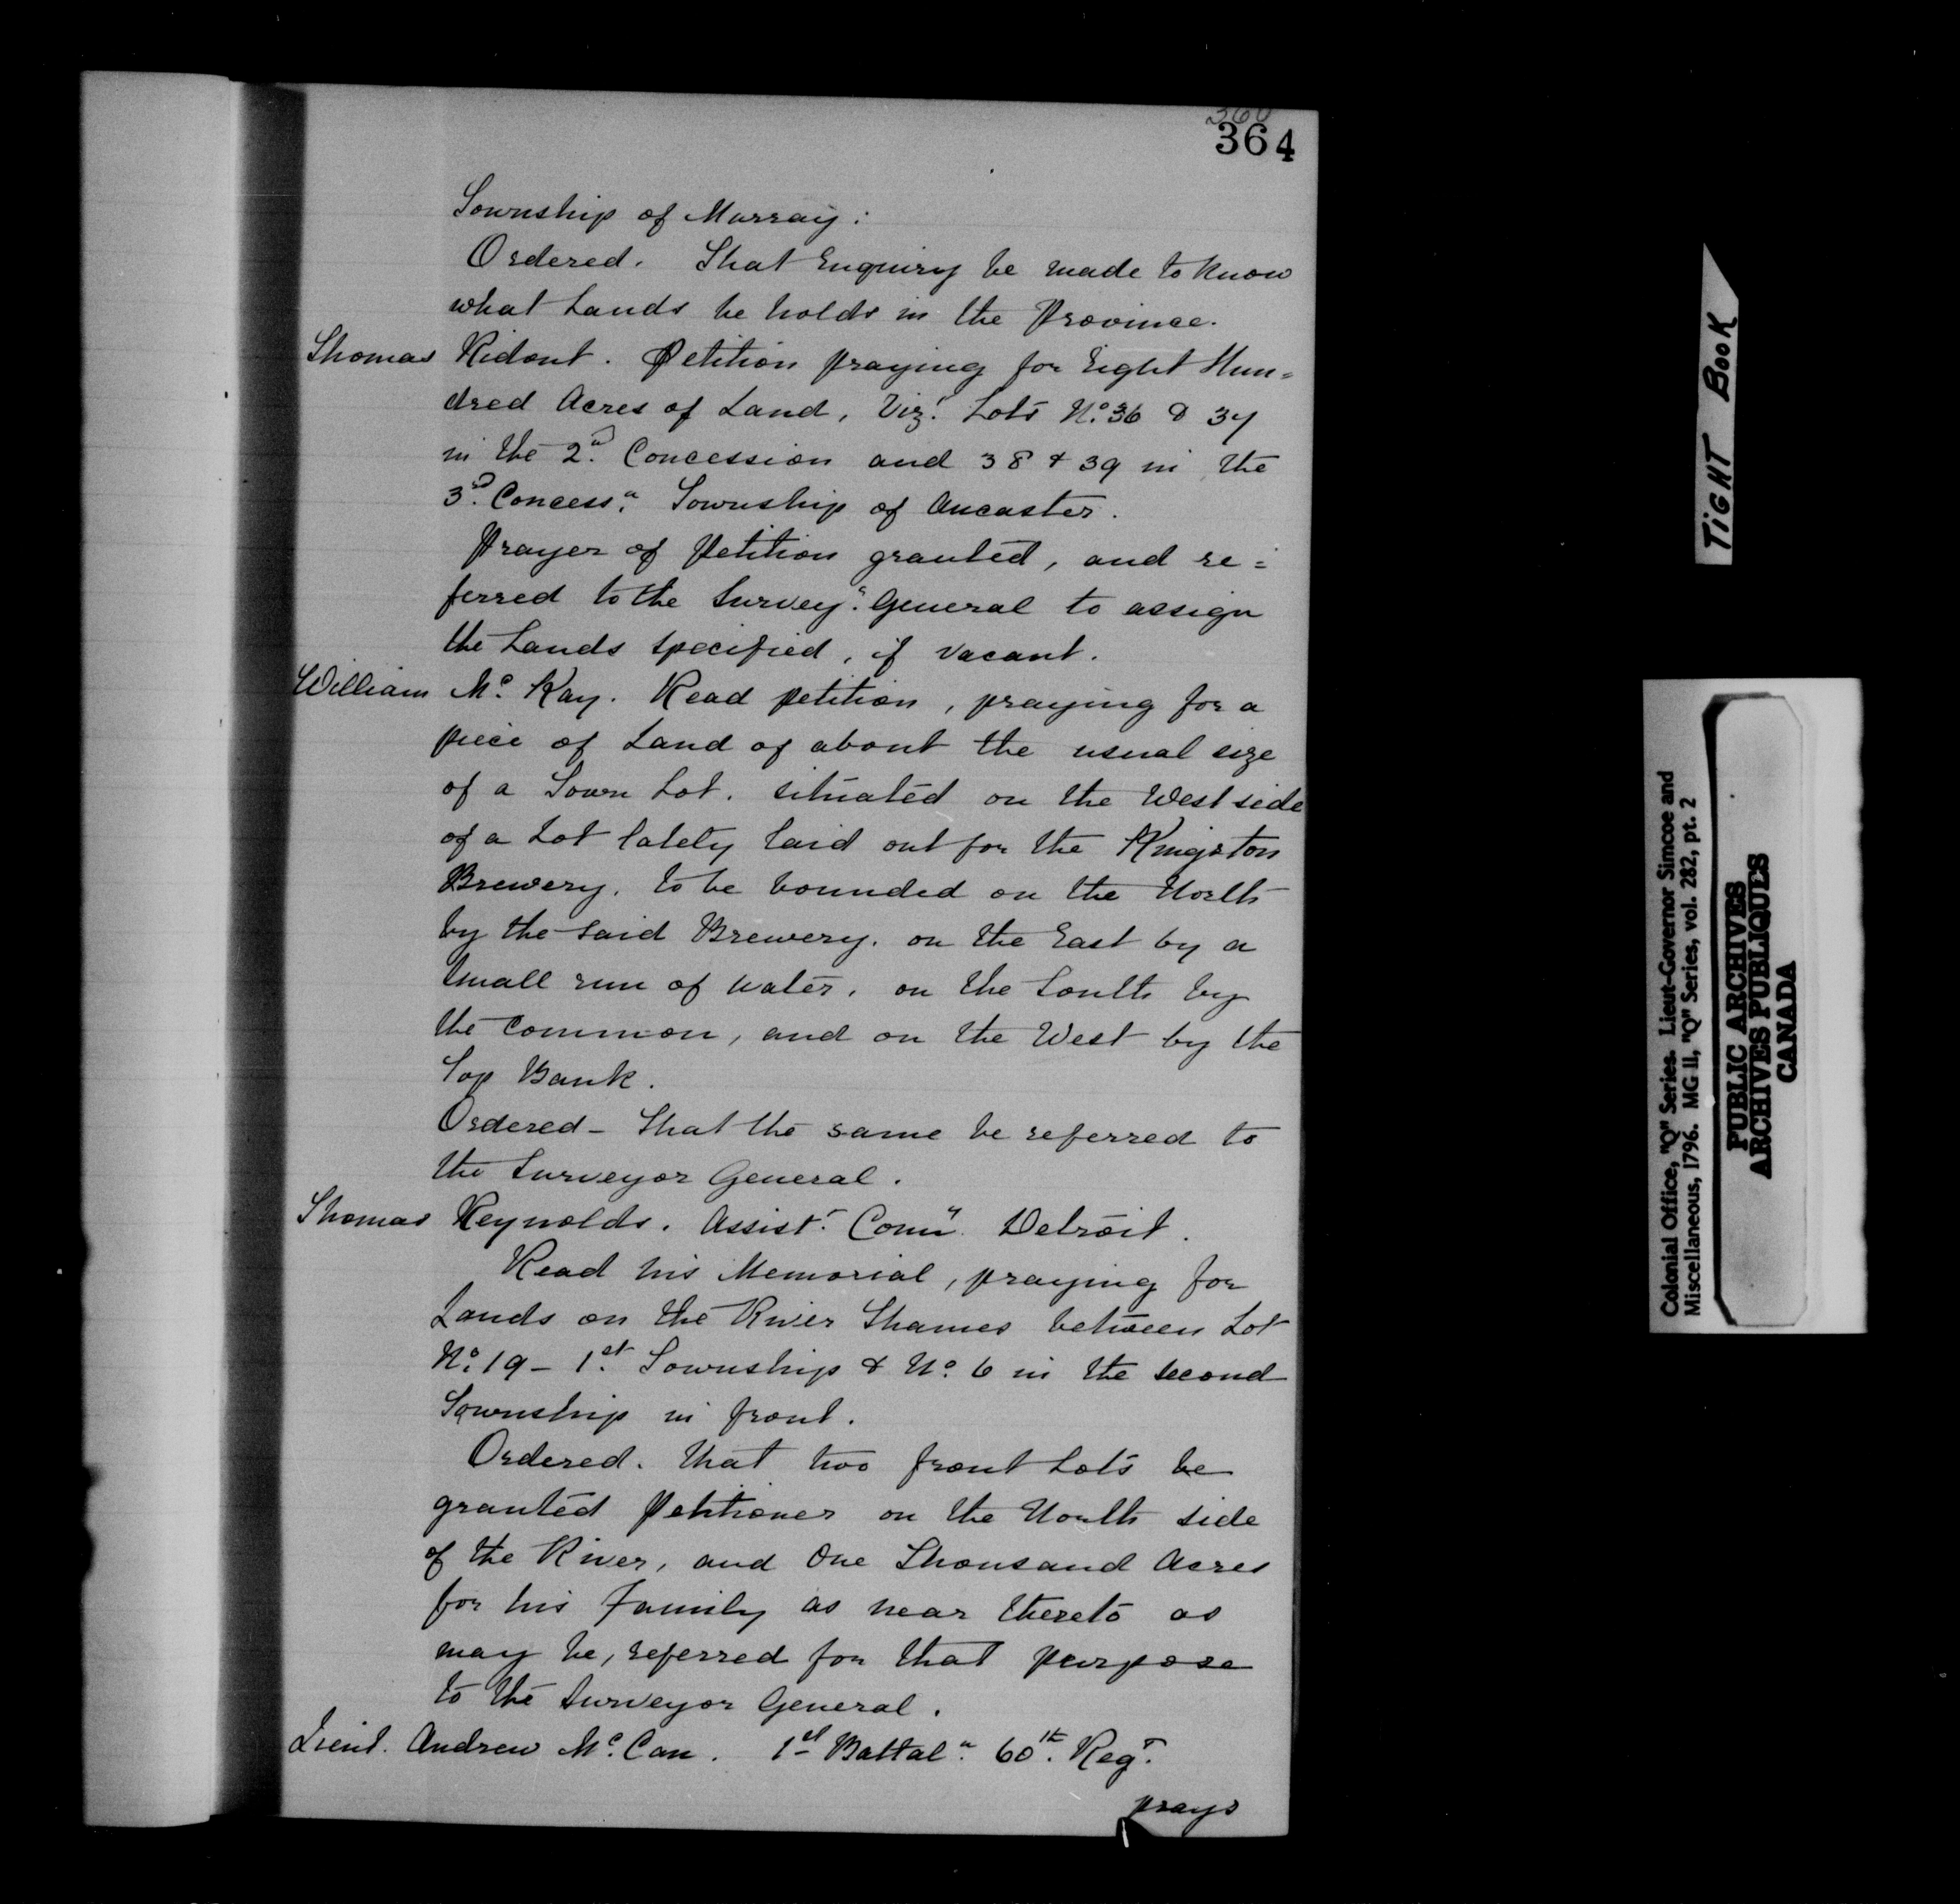 360
364
Township of Murray:
Ordered. That Enquiry be made to know
what Lands he holds in the Province.
Thomas Ridout. Petition praying for Eight Hun=
dred Acres of Land, Viz.t Lots No. 36 & 37
in the 2.d Concession and 38 & 39 in the
3.d Concess.n Township of Ancaster.
Prayer of Petition granted, and re=
ferred to the Survey.r General to assign
the Lands specified, if vacant.
William Mc Kay. Read petition, praying for a
piece of Land of about the usual size
of a Town Lot, situated on the West side
of a Lot lately laid out for the Kingston
Brewery, to be bounded on the North
by the said Brewery, on the East by a
small run of water, on the South by
the Common, and on the West by the
Top Bank.
Ordered - That the same be referred to
the Surveyor General.
Thomas Reynolds. Assist.t Comy. Detroit.
Read his Memorial, praying for
Lands on the River Thames between Lot
No. 19 - 1.st Township & No. 6 in the second
Township in front.
Ordered. that two front Lots be
granted Petitioner on the North side
of the River, and One Thousand Acres
for his Family as near thereto as
may be, referred for that purpose
to the Surveyor General.
Lieut. Andrew Mc. Can. 1st Battal.n 60.th Reg.t
prays
TIGHT BOOK
Colonial Office, "Q" Series. Lieut-Governor Simcoe and
Miscellaneous, 1796. MG 11, "Q" Series, vol. 282, pt. 2
PUBLIC ARCHIVES
ARCHIVES PUBLIQUES
CANADA